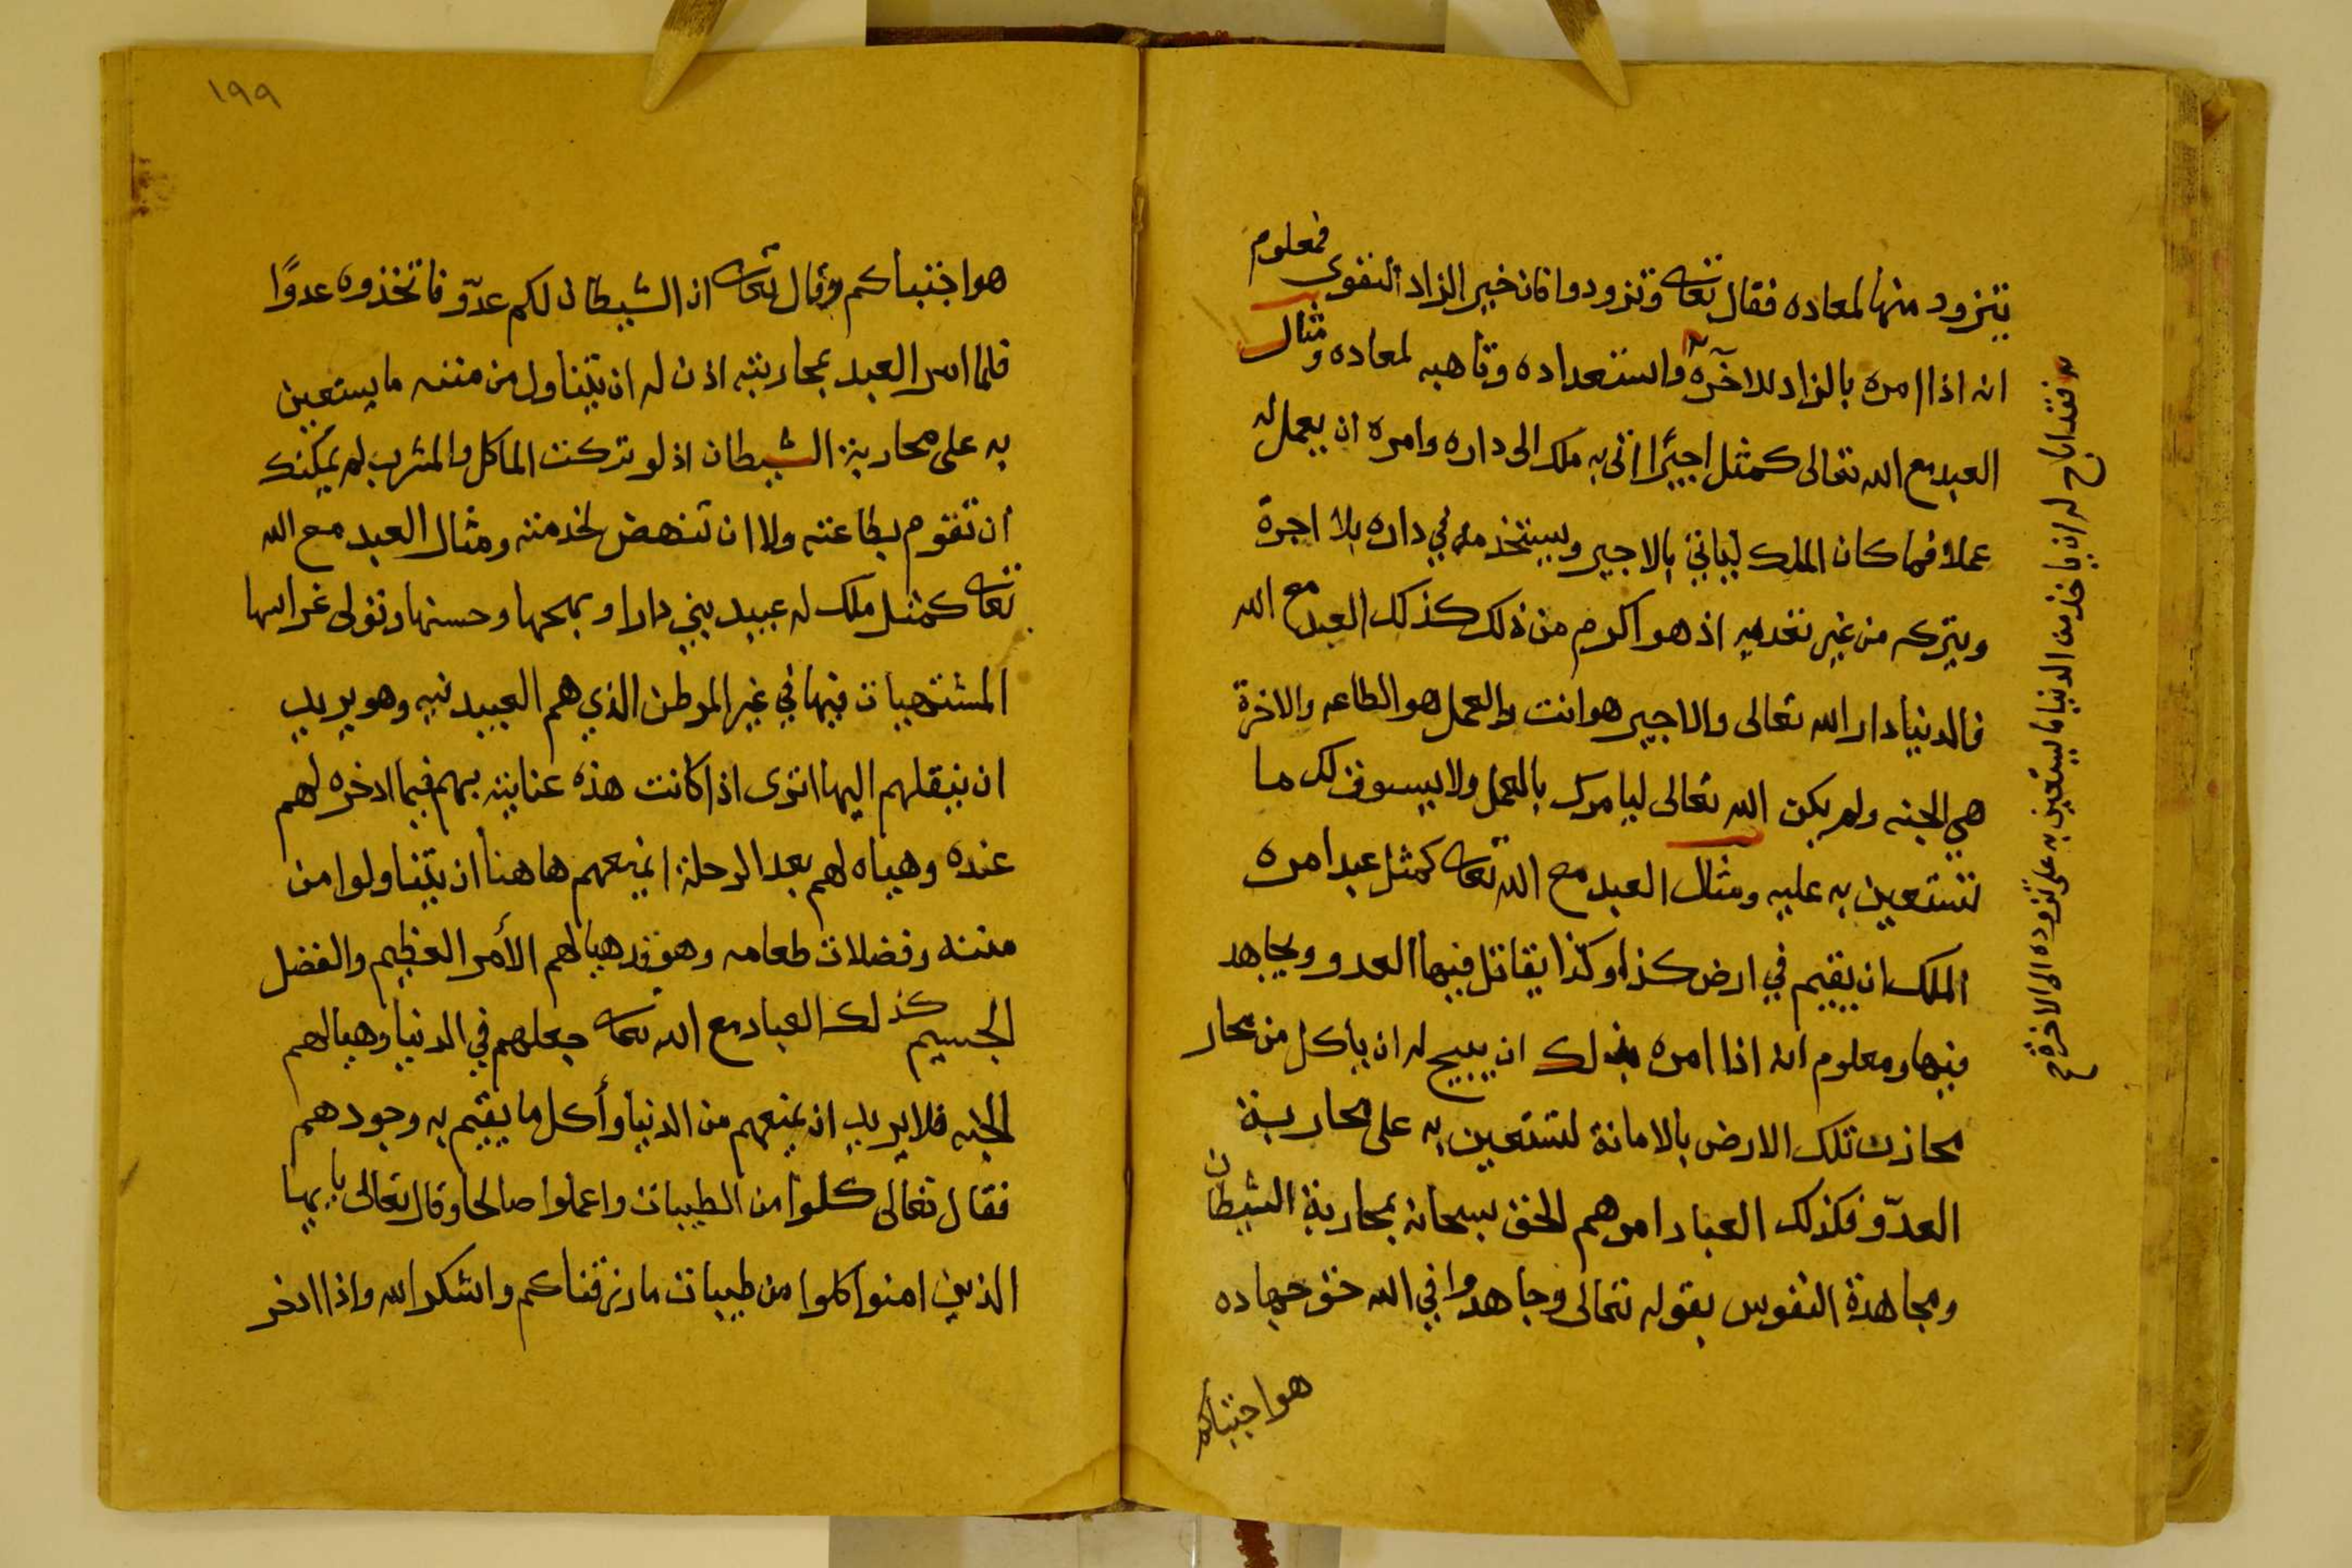 يتزود منها لمعاده فقال تعا وتزودوا فان خير الزاد التقوى فمعلوم
انه اذا امره بالزاد للآخرة واستعداده وتاهبه لمعاده ومثال
العبد مع الله تعالى كمثل اجيرا اتى به ملك الى داره وامره ان يعمل له
عملا فما كان الملك لياتي بالاجير ويستخدمه في داره بلا اجرة
ويتركه من غير تغديه اذ هو اكرم من ذلك كذلك العبد مع الله
فالدنيا دار الله تعالى والاجير هو انت والعمل هو الطاعه والاخرة
هي الجنه ولم يكن الله تعالى ليامرك بالعمل ولا يسوق لك ما
تستعين به عليه ومثال العبد مع الله تعا كمثل عبد امره
الملك ان يقيم في ارض كذا وكذا يقاتل فيها العدو ويجاهد
فيها ومعلوم انه اذا امره بذلك ان يبيح له ان ياكل من محار
محازن تلك الارض بالامانة لتستعين به على محاربة
العدّو فكذلك العباد امرهم الحق سبحانه بمحاربة الشيطان
ومجاهدة النفوس بقوله تعالى وجاهدوا في الله حق جهاده
هو اجتباكم
فقد اباح له ان ياخذ من الدنيا ما يستعين به على تزوده الى الاخرة صح
١٩٩
هو اجتباكم وقال تعا ان الشيطان لكم عدّو فاتخذوه عدوًا
فلما امر العبد بمحاربته اذن له ان يتناول من مننه ما يستعين
به على محاربة الشيطان اذ لو تركت الماكل والمشرب لم يمكنك
ان تقوم بطاعته ولا ان تنهض لخدمته ومثال العبد مع الله
تعا كمثل ملك له عبيد بني دارا وبهجها وحسنها وتولى غراسها
المشتهيات فيها في غير الموطن الذي هم العبيد فيه وهو يريد
ان ينقلهم اليها اترى اذا كانت هذه عنايته بهم فيما ادخره لهم
عنده وهياه لهم بعد الرحلة ايمنعهم هاهنا ان يتناولوا من
مننه وفضلات طعامه وهو قد هيا لهم الأمر العظيم والفضل
الجسيم كذلك العباد مع الله تعا جعلهم في الدنيا وهيا لهم
الجنه فلا يريد ان يمنعهم من الدنيا وأكل ما يقيم به وجودهم
فقال تعالى كلوا من الطيبات واعملوا صالحا وقال تعالى يايها
الذين امنوا كلوا من طيبات ما رزقناكم واشكروا لله واذا ادخر